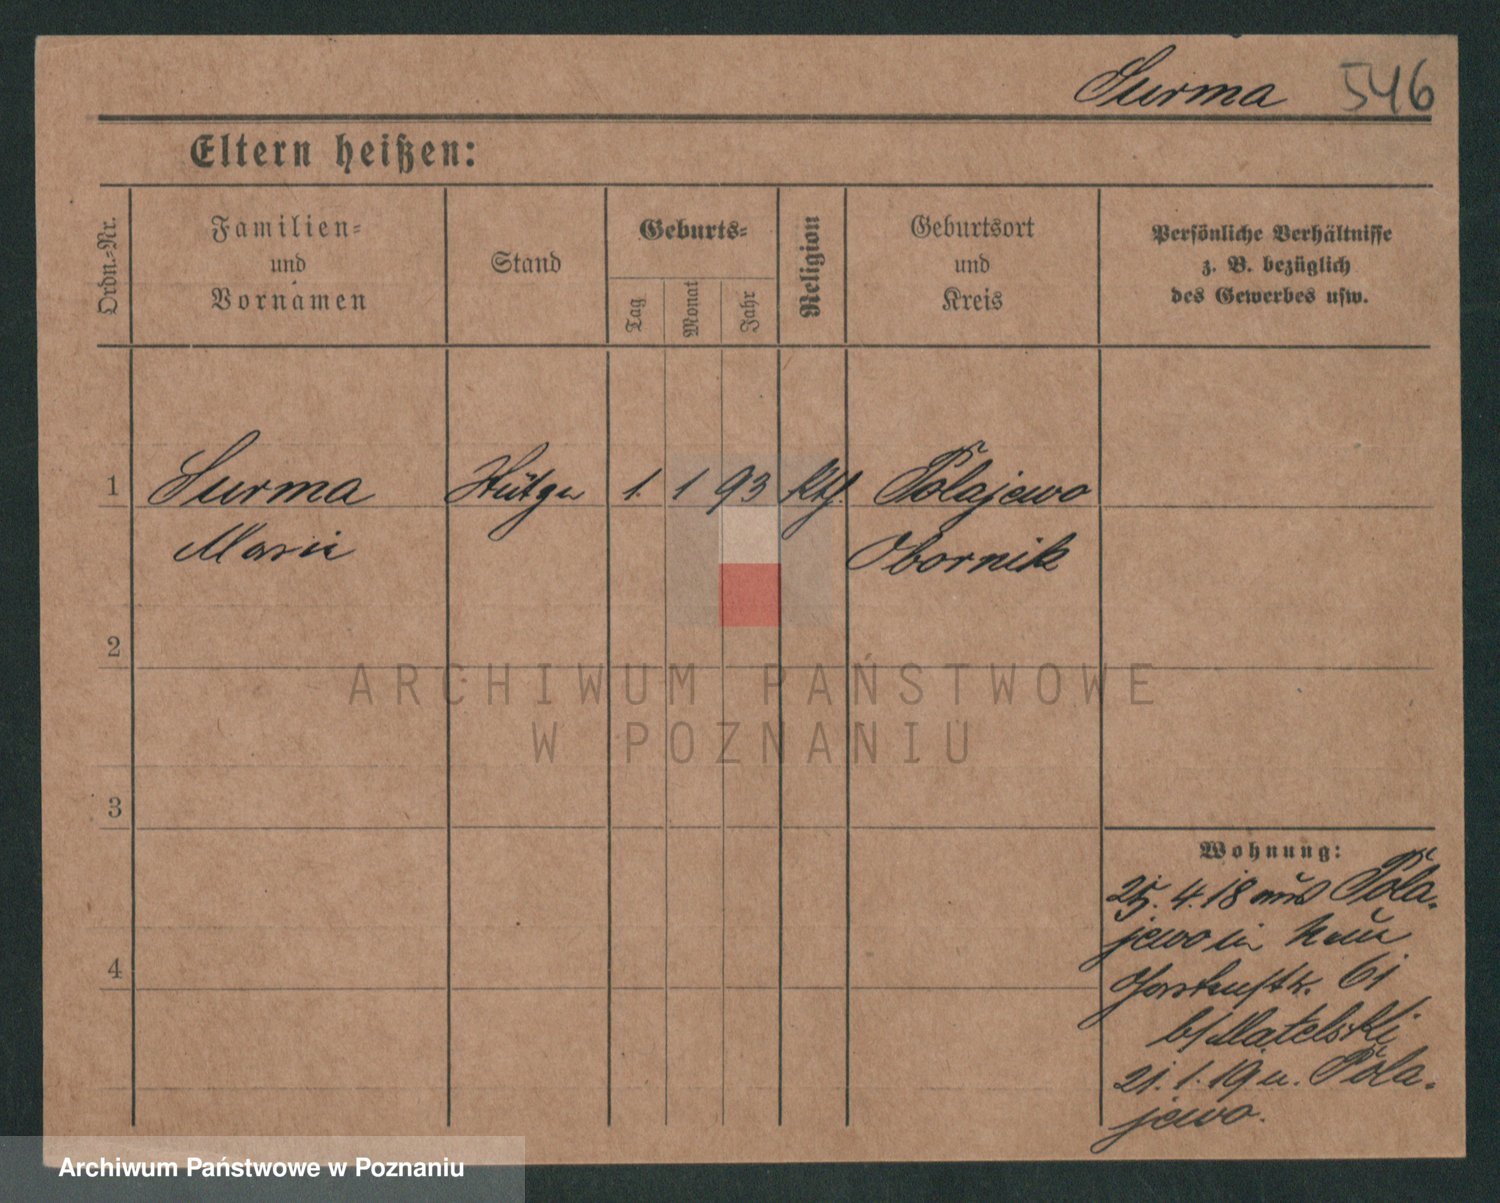 Surma 546
Eltern heißen:
Ordn.-Nr.
Familien-
und
Vornamen
Stand
Geburts-
Tag
Monat
Jahr
Religion
Geburtsort
und
Kreis
Persönliche Verhältnisse
z. B. bezüglich
des Gewerbes usw.
1 Surma 1. 1 93 Kth. Polajewo
Marie Obornik
2
ARCHIWUM PAŃSTWOWE
W POZNANIU
3
Wohnung:
25. 4. 18 aus Pola-
jewo in
4
Gartenstr. 61
b/Matelski
21. 1. 19 n. Pola-
jewo.
Archiwum Państwowe w Poznaniu